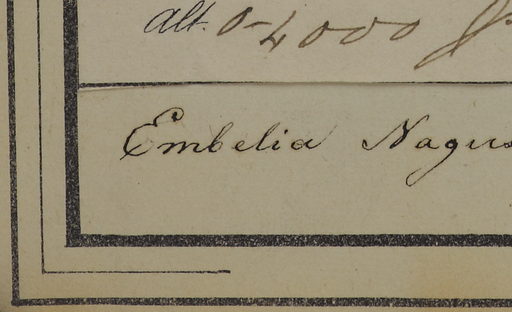 Alt. 0-4000 ft.
Embelia Nagus